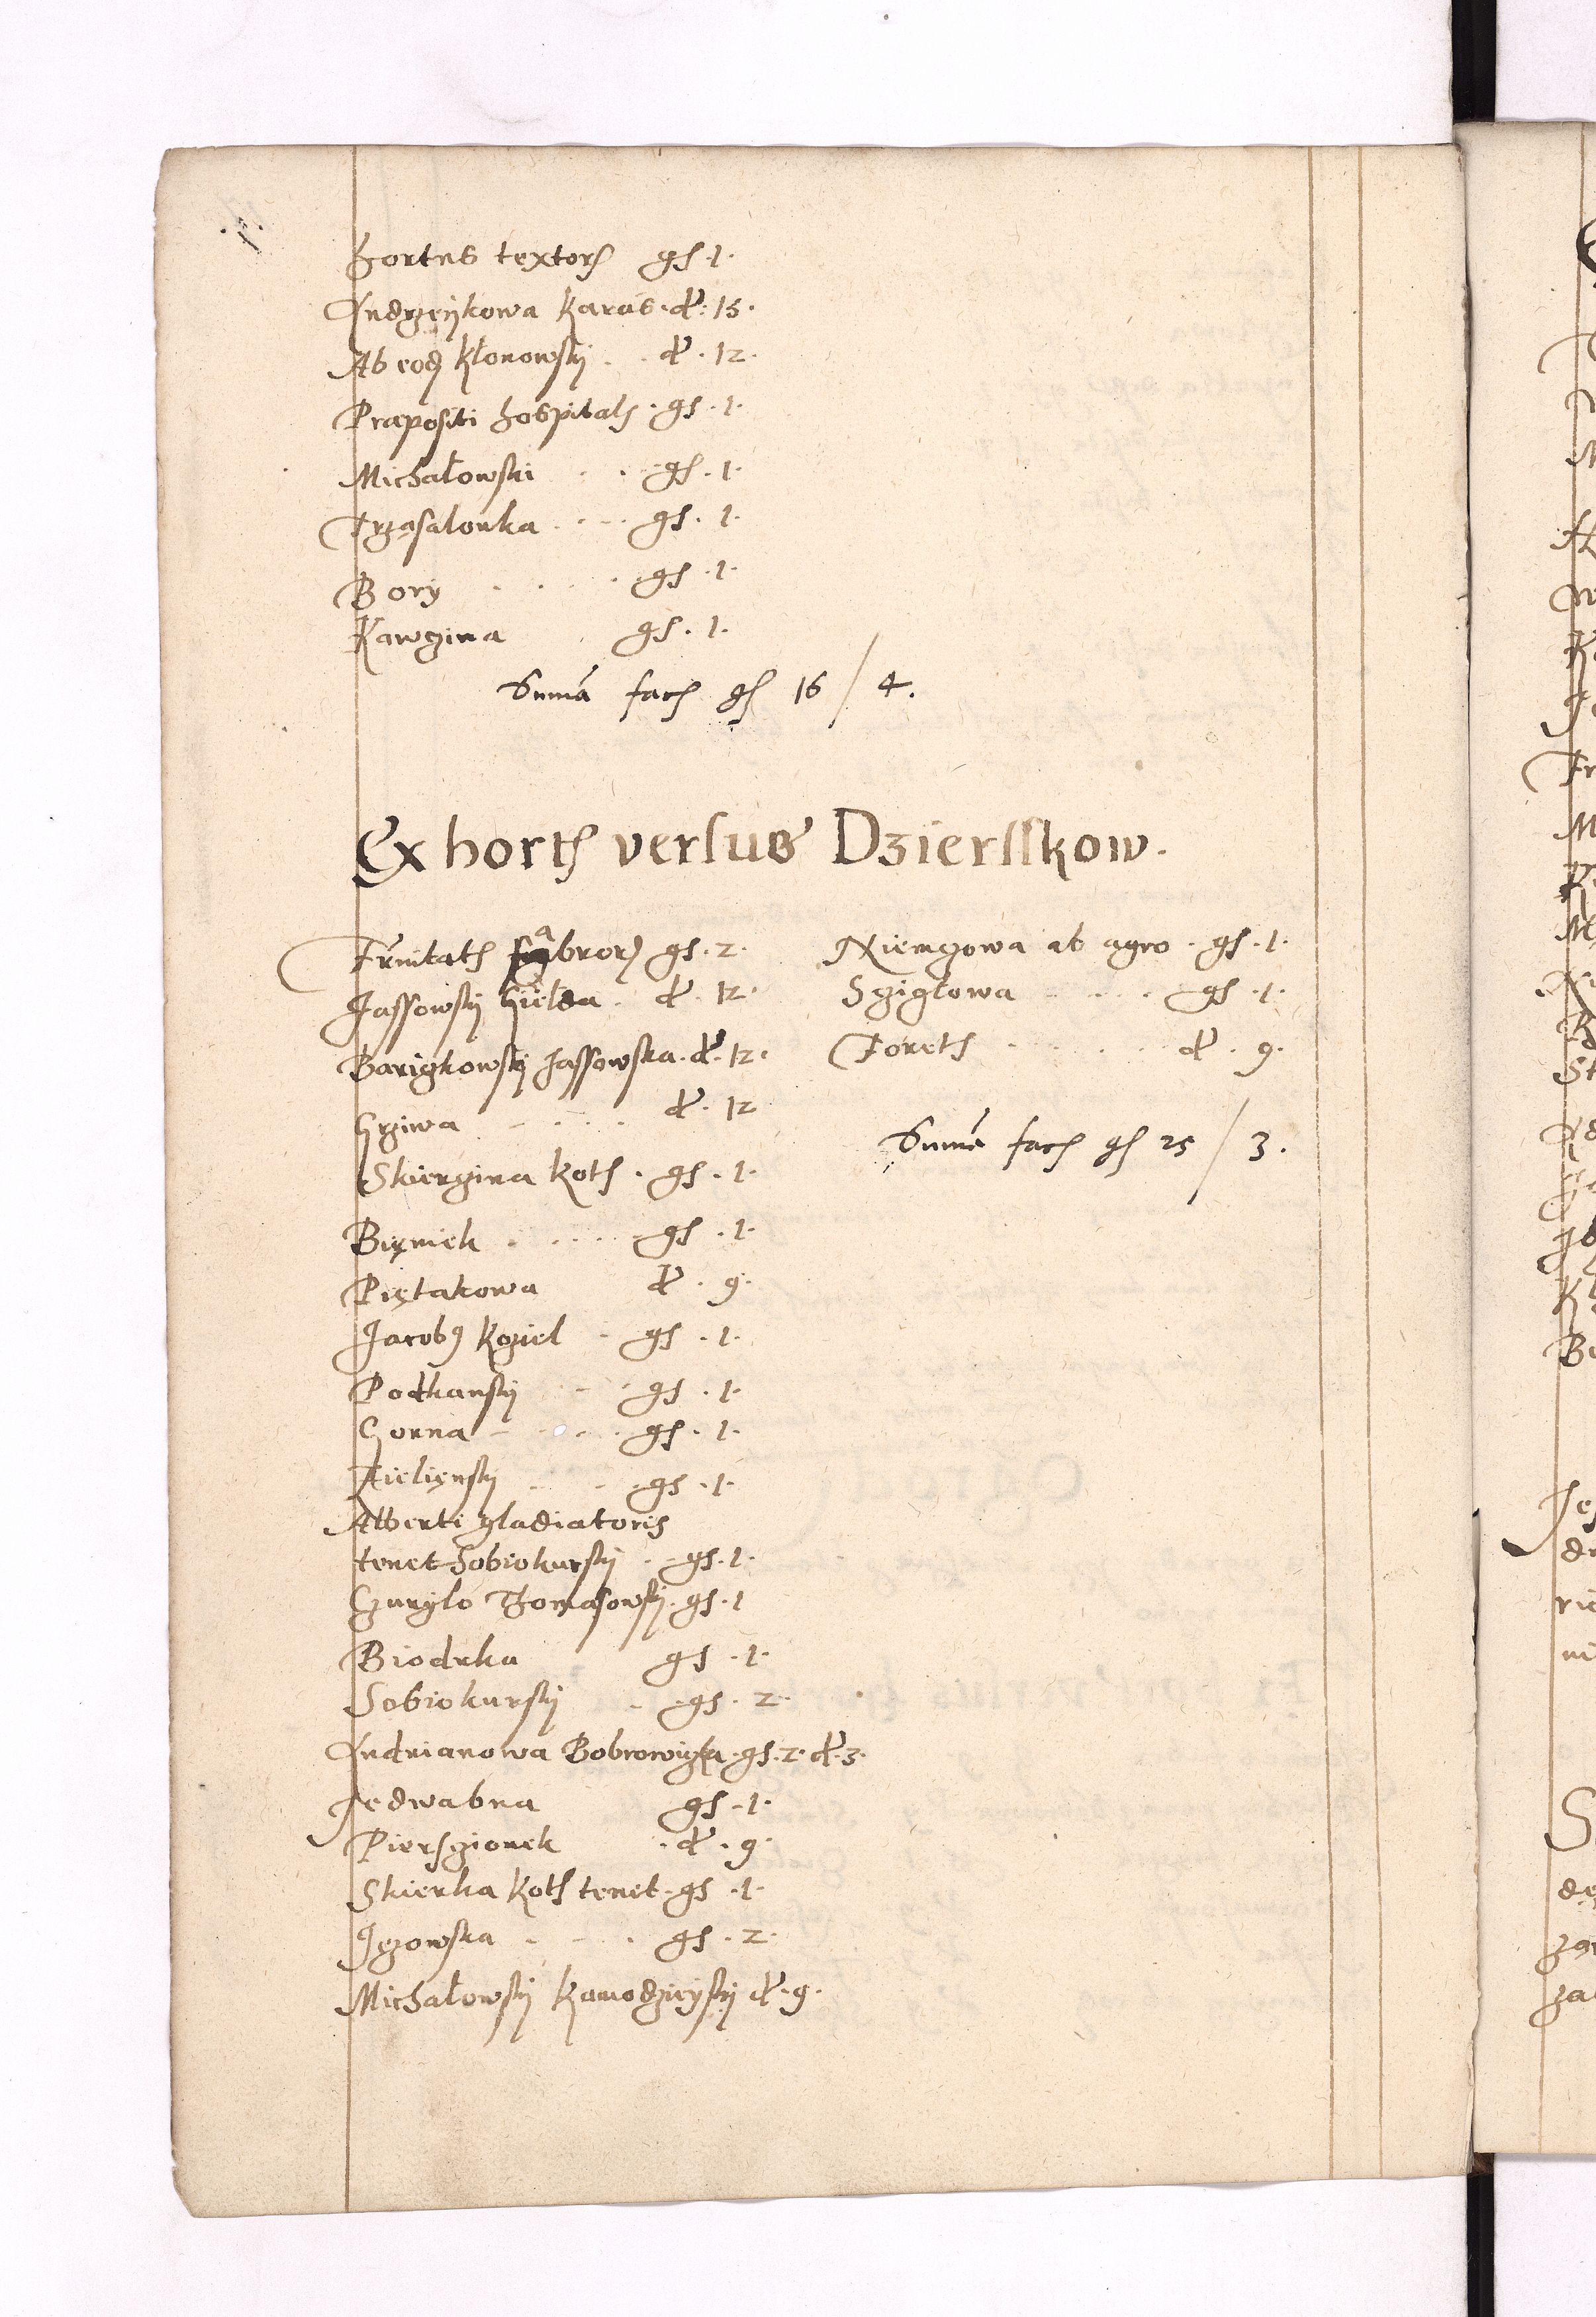 Hortus textoris gs. 1.
Andrzeykowa Karas. d. 15.
Ab eod Klonowsky d. 12.
Præpositi hospitalis. gs. 1.
Michałowski gs. 1.
Trzasałonka gs. 1.
Bory gs. 1.
Kawzina gs. 1.
Suma facis gs 16 / 4.
Ex hortis versus Dziersskow.
Trinitatis fabrorum gs. 2.
Jassowsky Gielda. d. 12.
Barizkowsky Jassowska. d. 12.
Grziwa d. 12
Skierzina Kotis. gs. 1.
Bięniek gs. 1.
Piętakowa d. 9.
Jacobus Koziel gs. 1.
Podkansky gs. 1.
Gorna gs. 1.
Zieliensky gs. 1.
Alberti gladiatoris
tenet Sobiekursky gs. 1.
Czuryło Thomasowsky. gs. 1
Biodrka gs. 1.
Sobiekursky gs. 2.
Andrianowa Bobrowizka. gs. 2. d. 3.
Jedwabna gs. 1.
Pierszionek d. 9.
Skierka Kotis tenet. gs. 1.
Jezowska gs. 2.
Michałowsky Kamodzieysky d. 9.
Niemzowa ab agro. gs. 1.
Szigłowa gs. 1.
Toretis d. 9.
Suma facis gs 25 / 3.